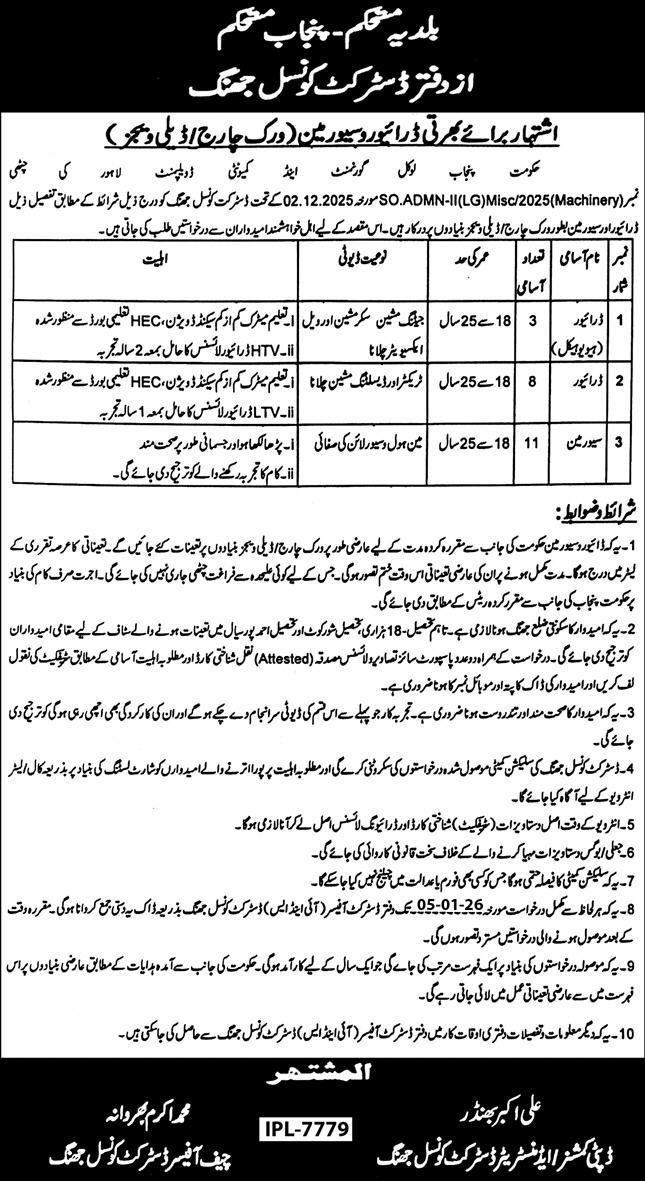 بلدیہ مستحکم - پنجاب مستحکم
از دفتر ڈسٹرکٹ کونسل جھنگ
اشتہار برائے بھرتی ڈرائیور و سیورمین (ورک چارج/ڈیلی ویجز)
حکومت پنجاب لوکل گورنمنٹ اینڈ کمیونٹی ڈویلپمنٹ لاہور کی چٹھی
نمبر SO.ADMN-II(LG)Misc/2025(Machinery) مورخہ 02.12.2025 کے تحت ڈسٹرکٹ کونسل جھنگ کو درج ذیل شرائط کے مطابق تفصیل ذیل
ڈرائیور اور سیورمین بطور ورک چارج/ڈیلی ویجز بنیادوں پر درکار ہیں۔ اس مقصد کے لیے اہل خواہشمند امیدواران سے درخواستیں طلب کی جاتی ہیں۔
نمبر شمار نام آسامی تعداد آسامی عمر کی حد نوعیت ڈیوٹی اہلیت
1 ڈرائیور (ہیوی وہیکل) 3 18 سے 25 سال جیٹنگ مشین سکر مشین اور ویل ایکسیویٹر چلانا
i۔ تعلیم میٹرک کم از کم سیکنڈ ڈویژن، HEC تعلیمی بورڈ سے منظور شدہ
ii۔ HTV ڈرائیور لائسنس کا حامل بمعہ 2 سالہ تجربہ
2 ڈرائیور 8 18 سے 25 سال ٹریکٹر اور ڈسلٹنگ مشین چلانا
i۔ تعلیم میٹرک کم از کم سیکنڈ ڈویژن، HEC تعلیمی بورڈ سے منظور شدہ
ii۔ LTV ڈرائیور لائسنس کا حامل بمعہ 1 سالہ تجربہ
3 سیورمین 11 18 سے 25 سال مین ہول و سیور لائن کی صفائی
i۔ پڑھا لکھا ہو اور جسمانی طور پر صحت مند
ii۔ کام کا تجربہ رکھنے والے کو ترجیح دی جائے گی۔
شرائط و ضوابط:
1۔ یہ کہ ڈرائیور و سیورمین حکومت کی جانب سے مقررہ کردہ مدت کے لیے عارضی طور پر ورک چارج/ڈیلی ویجز بنیادوں پر تعینات کئے جائیں گے۔ تعیناتی کا عرصہ تقرری کے
لیٹر میں درج ہوگا۔ مدت مکمل ہونے پر ان کی عارضی تعیناتی اس وقت ختم تصور ہوگی۔ جس کے لیے کوئی علیحدہ سے فراغت چٹھی جاری نہیں کی جائے گی۔ اجرت صرف کام کی بنیاد
پر حکومت پنجاب کی جانب سے مقرر کردہ ریٹس کے مطابق دی جائے گی۔
2۔ یہ کہ امیدوار کا سکونتی ضلع جھنگ ہونا لازمی ہے۔ تاہم تحصیل 18-ہزاری، تحصیل شورکوٹ اور تحصیل احمد پور سیال میں تعینات ہونے والے سٹاف کے لیے مقامی امیدواران
کو ترجیح دی جائے گی۔ درخواست کے ہمراہ دو عدد پاسپورٹ سائز تصاویر و لائسنس مصدقہ (Attested) نقل شناختی کارڈ اور مطلوبہ اہلیت آسامی کے مطابق سرٹیفکیٹ کی نقول
لف کریں اور امیدوار کی ڈاک کا پتہ اور موبائل نمبر کا ہونا ضروری ہے۔
3۔ یہ کہ امیدوار کا صحت مند اور تندرست ہونا ضروری ہے۔ تجربہ کار جو پہلے سے اس قسم کی ڈیوٹی سرانجام دے چکے ہوں گے اور ان کی کارکردگی بھی اچھی رہی ہوگی کو ترجیح دی
جائے گی۔
4۔ ڈسٹرکٹ کونسل جھنگ کی سلیکشن کمیٹی موصول شدہ درخواستوں کی سکروٹنی کرے گی اور مطلوبہ اہلیت پر پورا اترنے والے امیدواروں کو شارٹ لسٹنگ کی بنیاد پر بذریعہ کال/لیٹر
انٹرویو کے لیے آگاہ کیا جائے گا۔
5۔ انٹرویو کے وقت اصل دستاویزات (سرٹیفکیٹ) شناختی کارڈ اور ڈرائیونگ لائسنس اصل لے کر آنا لازمی ہوگا۔
6۔ جعلی/بوگس دستاویزات مہیا کرنے والے کے خلاف سخت قانونی کاروائی کی جائے گی۔
7۔ یہ کہ سلیکشن کمیٹی کا فیصلہ حتمی ہوگا جس کو کسی بھی فورم یا عدالت میں چیلنج نہیں کیا جا سکے گا۔
8۔ یہ کہ ہر لحاظ سے مکمل درخواست مورخہ 05-01-26 تک دفتر ڈسٹرکٹ آفیسر (آئی اینڈ ایس) ڈسٹرکٹ کونسل جھنگ بذریعہ ڈاک یا دستی جمع کروانا ہوگی۔ مقررہ وقت
کے بعد موصول ہونے والی درخواستیں مسترد تصور ہوں گی۔
9۔ یہ کہ موصولہ درخواستوں کی بنیاد پر ایک فہرست مرتب کی جائے گی جو ایک سال کے لیے کارآمد ہوگی۔ حکومت کی جانب سے آمدہ ہدایات کے مطابق عارضی بنیادوں پر اس
فہرست میں سے عارضی تعیناتی عمل میں لائی جاتی رہے گی۔
10۔ یہ کہ دیگر معلومات و تفصیلات دفتری اوقات کار میں دفتر ڈسٹرکٹ آفیسر (آئی اینڈ ایس) ڈسٹرکٹ کونسل جھنگ سے حاصل کی جا سکتی ہیں۔
المشتہر
علی اکبر بھنڈر
ڈپٹی کمشنر/ایڈمنسٹریٹر ڈسٹرکٹ کونسل جھنگ
محمد اکرم بھروانہ
چیف آفیسر ڈسٹرکٹ کونسل جھنگ
IPL-7779